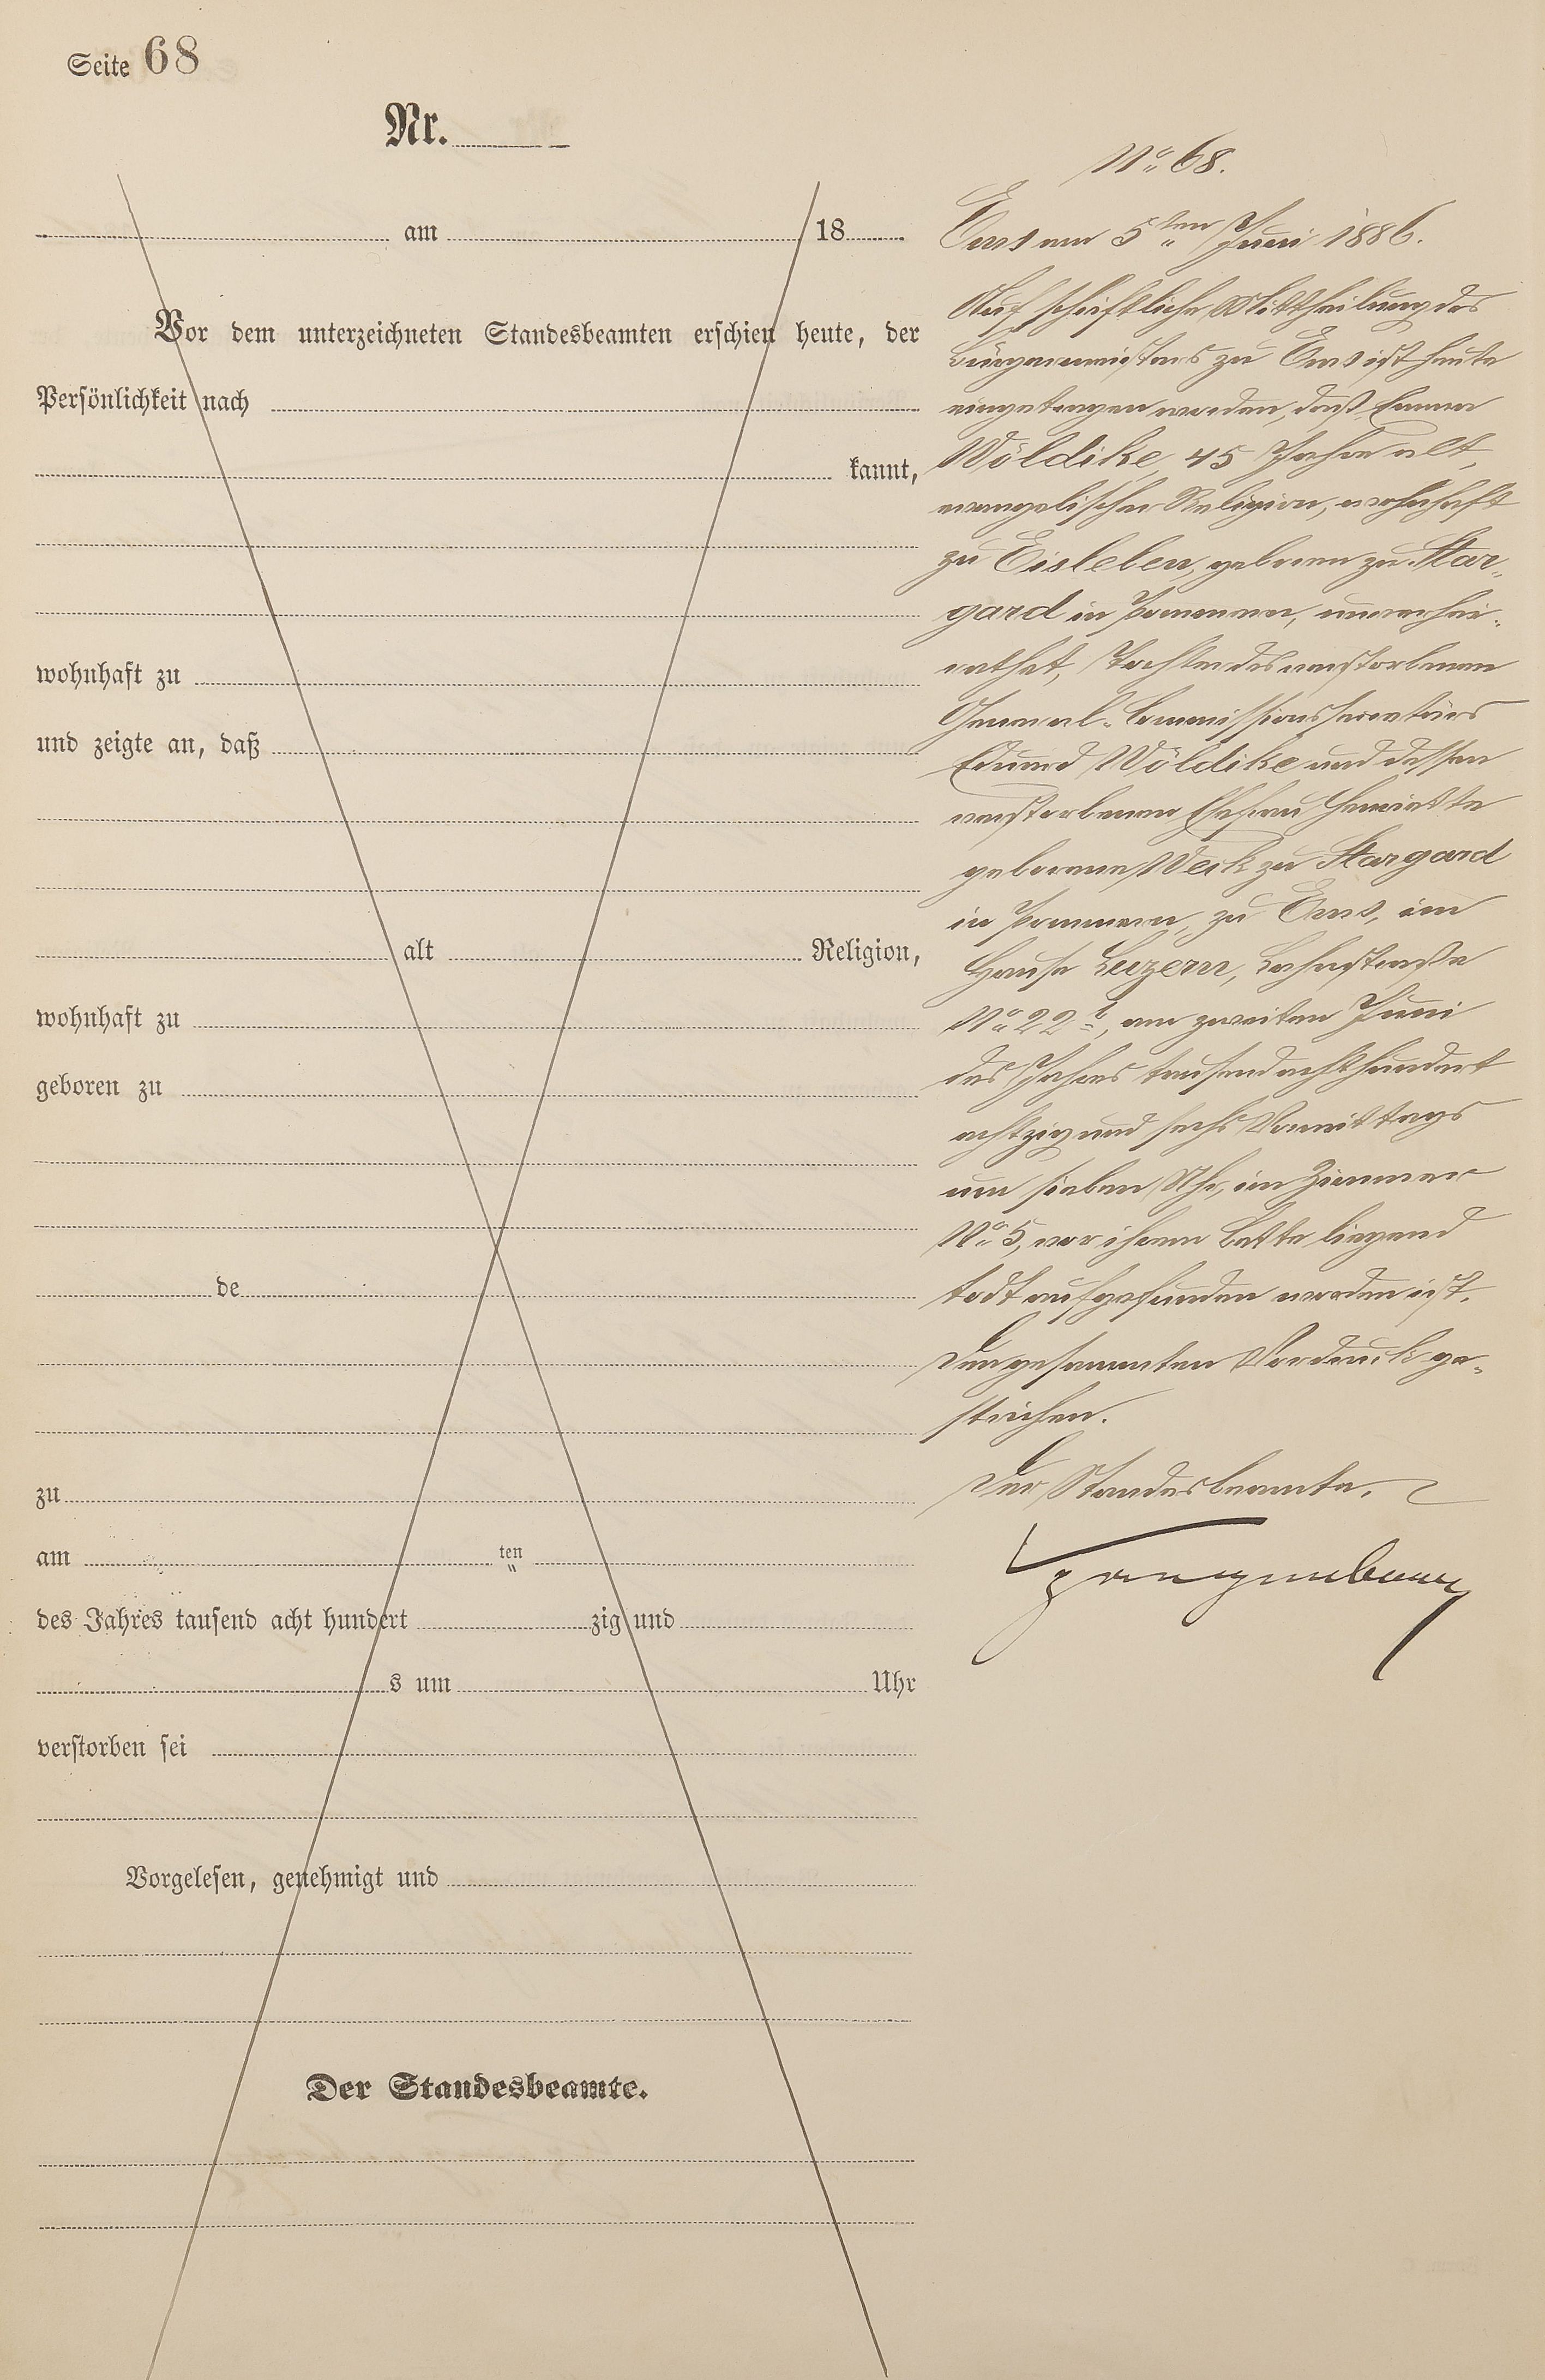 Seite 68
Nr.
am 18
Vor dem unterzeichneten Standesbeamten erschien heute, der
Persönlichkeit nach
kannt,
wohnhaft zu
und zeigte an, daß
alt Religion,
wohnhaft zu
geboren zu
de
zu
am ten
des Jahres tausend acht hundert zig und
s um Uhr
verstorben sei
Vorgelesen, genehmigt und
Der Standesbeamte.
No 68.
Ems am 5ten Juni 1886.
Auf schriftliche Mittheilung des
Bürgermeisters zu Ems ist heute
eingetragen worden, daß Emma
Wöldike, 45 Jahre alt,
evangelischer Religion, wohnhaft
zu Eisleben, geboren zu Star-
gard in Pommern, unverhei-
rathet, Tochter des verstorbenen
General-Commissionssecretärs
Eduard Wöldike und dessen
verstorbenen Ehefrau Henriette
geborene Weik zu Stargard
in Pommern, zu Ems, im
Hause Luzern, Lahnstraße
No 22b, am zweiten Juni
des Jahres tausend achthundert
achtzig und sechs Vormittags
um sieben Uhr, im Zimmer
No 5, vor ihrem Bette liegend
todt aufgefunden worden ist.
Den gesammten Vordruck ge-
strichen.
Der Standesbeamte.